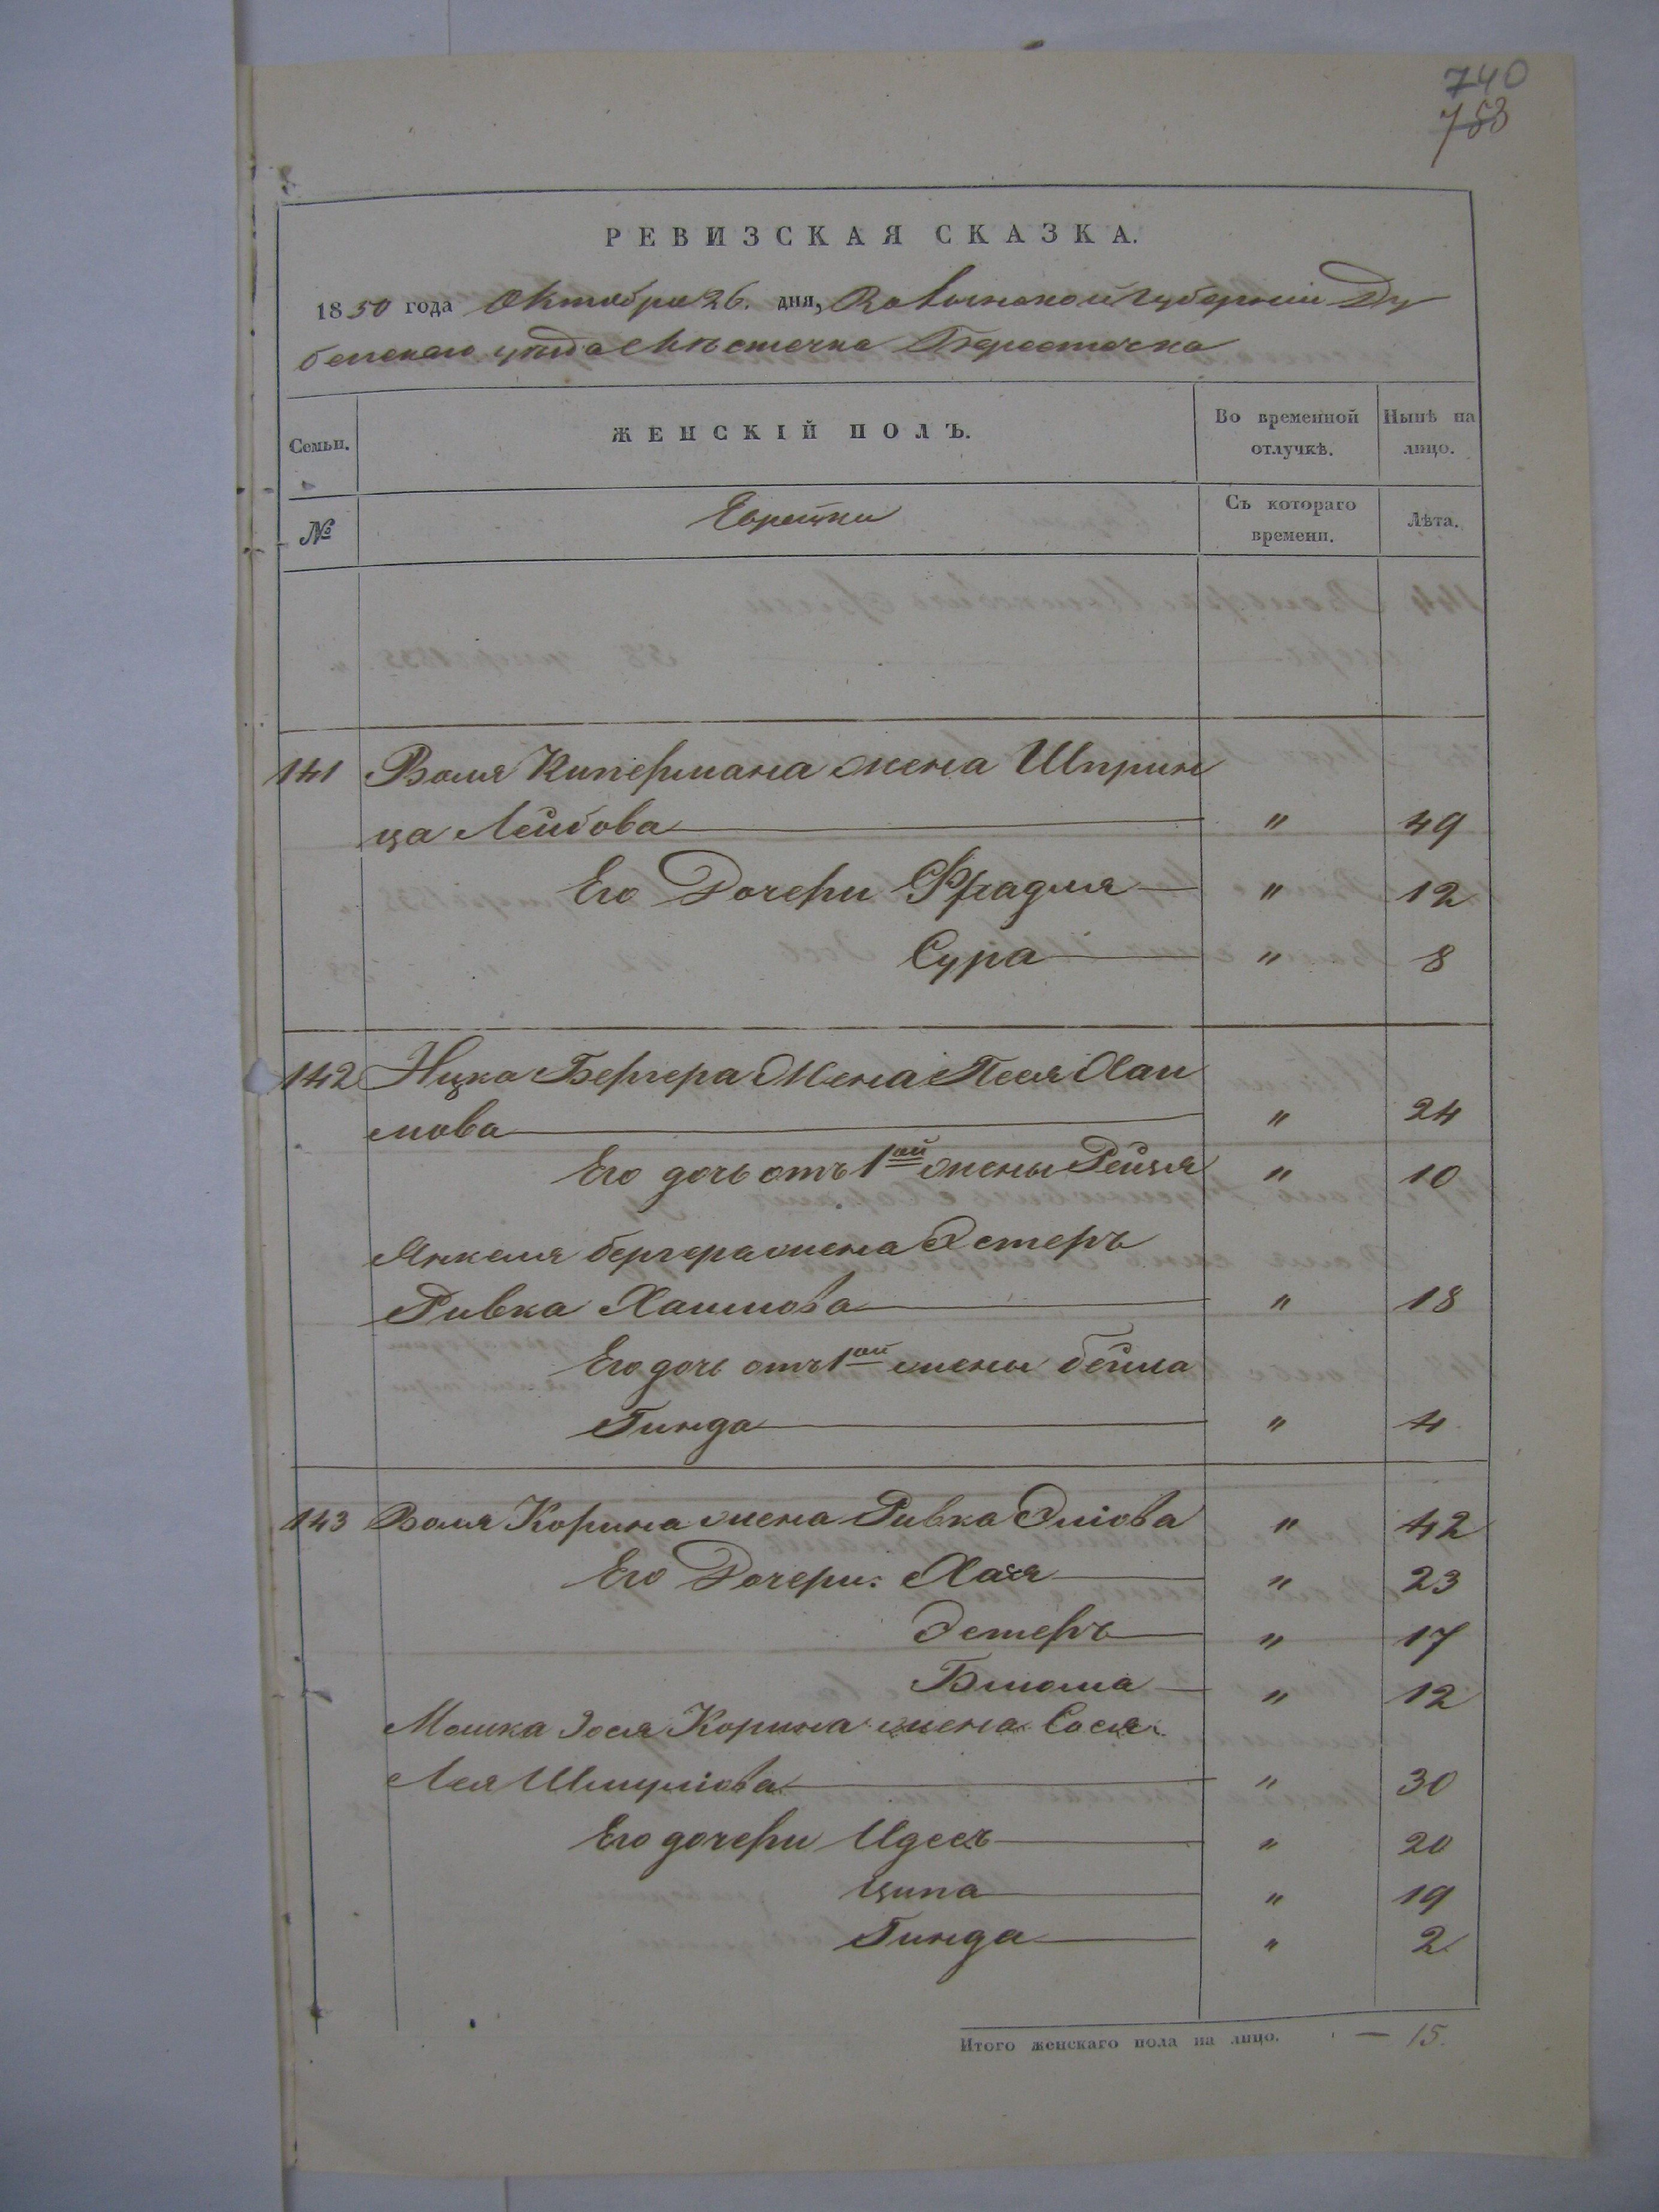 740
758
РЕВИЗСКАЯ СКАЗКА.
1850 года Октября 26. дня, Волынской Губерніи Ду
бенскаго уѣзда Мѣстечка Берестечка
Семьи. ЖЕНСКІЙ ПОЛЪ. Во временной отлучкѣ. Нынѣ на лицо.
№ Еврейки Съ котораго времени. Лѣта.
141 Воля Кипермана жена Шприн
ца Лейбова " 49
Его Дочери Фрадля " 12
Сура " 8
142 Ицка Бергера Жена Песя Хаи
мова " 24
Его дочь отъ 1ой жены Рейзя " 10
Янкеля бергера жена Эстеръ
Ривка Хаимова " 18
Его дочь отъ 1ой жены бейла
Гинда " 4
143 Воля Корина жена Ривка Эліова " 42
Его Дочери: Хая " 23
Эстеръ " 17
Блюма " 12
Мошка Іося Корина жена Сося
Лея Шмуліова " 30
Его дочери Идесъ " 20
Ципа " 19
Гинда " 2
Итого женскаго пола на лицо. — 15.